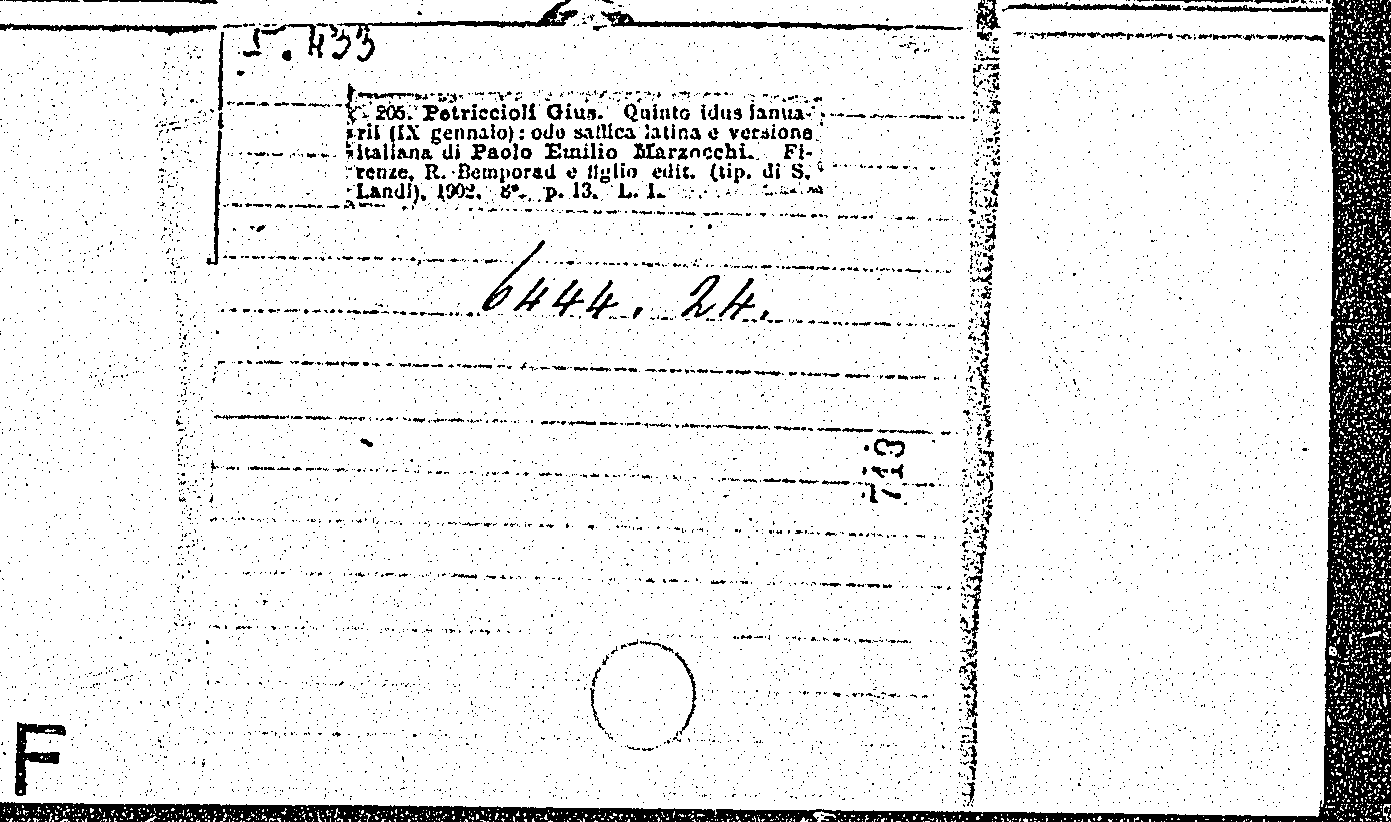 5.433
205. Petriccioli Gius. Quinto idus ianua-
rii (IX gennaio): ode saffica latina e versione
italiana di Paolo Emilio Marzocchi. Fi-
renze, R. Bemporad e figlio edit. (tip. di S.
Landi), 1902. 8°. p. 13. L. 1.
6444. 24.
713
F